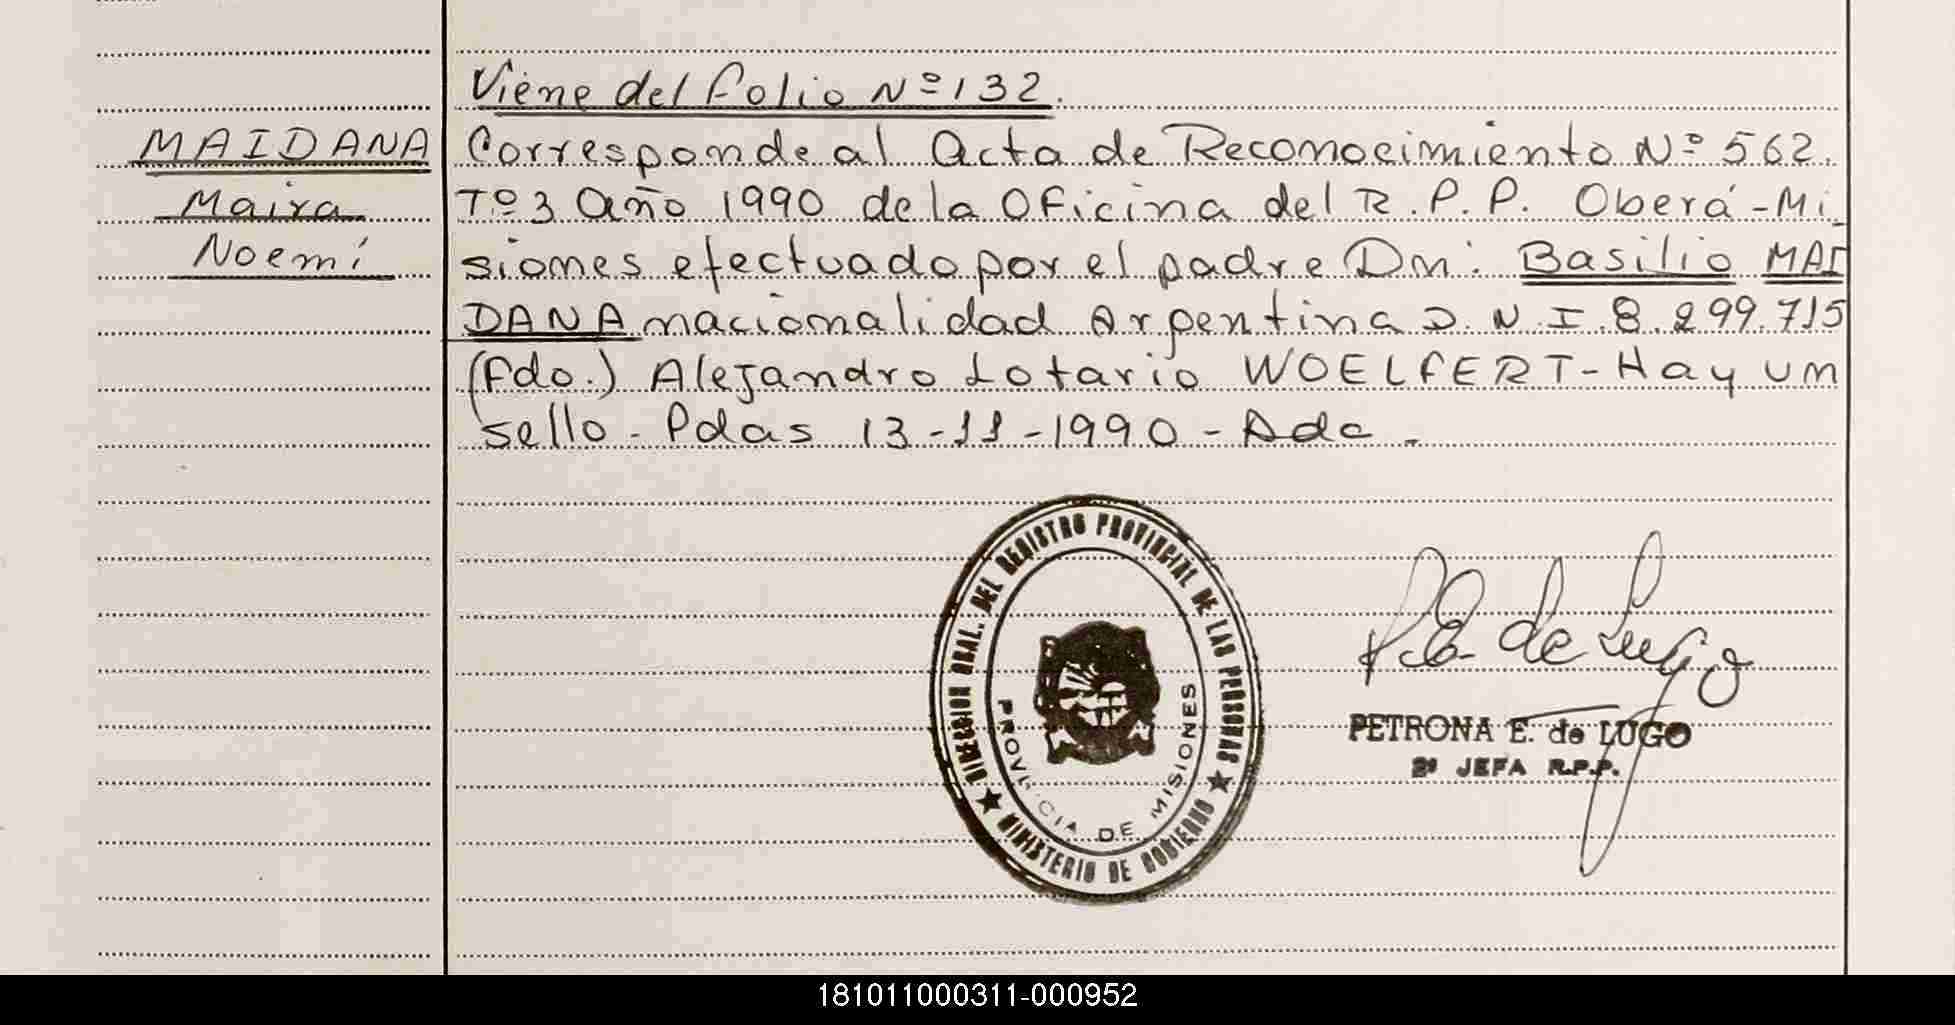 Viene del folio Nº 132.
MAIDANA
Maira
Noemí
Corresponde al Acta de Reconocimiento Nº 562.
Tº 3 Año 1990 de la Oficina del R.P.P. Oberá-Mi
siones efectuado por el padre Dn: Basilio MAI
DANA nacionalidad Argentina D.N.I. 8.299.715
(Fdo.) Alejandro Lotario WOELFERT-Hay un
sello-Pdas 13-11-1990-Adc.
DIRECCION GRAL. DEL REGISTRO PROVINCIAL DE LAS PERSONAS
MINISTERIO DE GOBIERNO
PROVINCIA DE MISIONES
P.E. de Lugo
PETRONA E. de LUGO
2ª JEFA R.P.P.
181011000311-000952